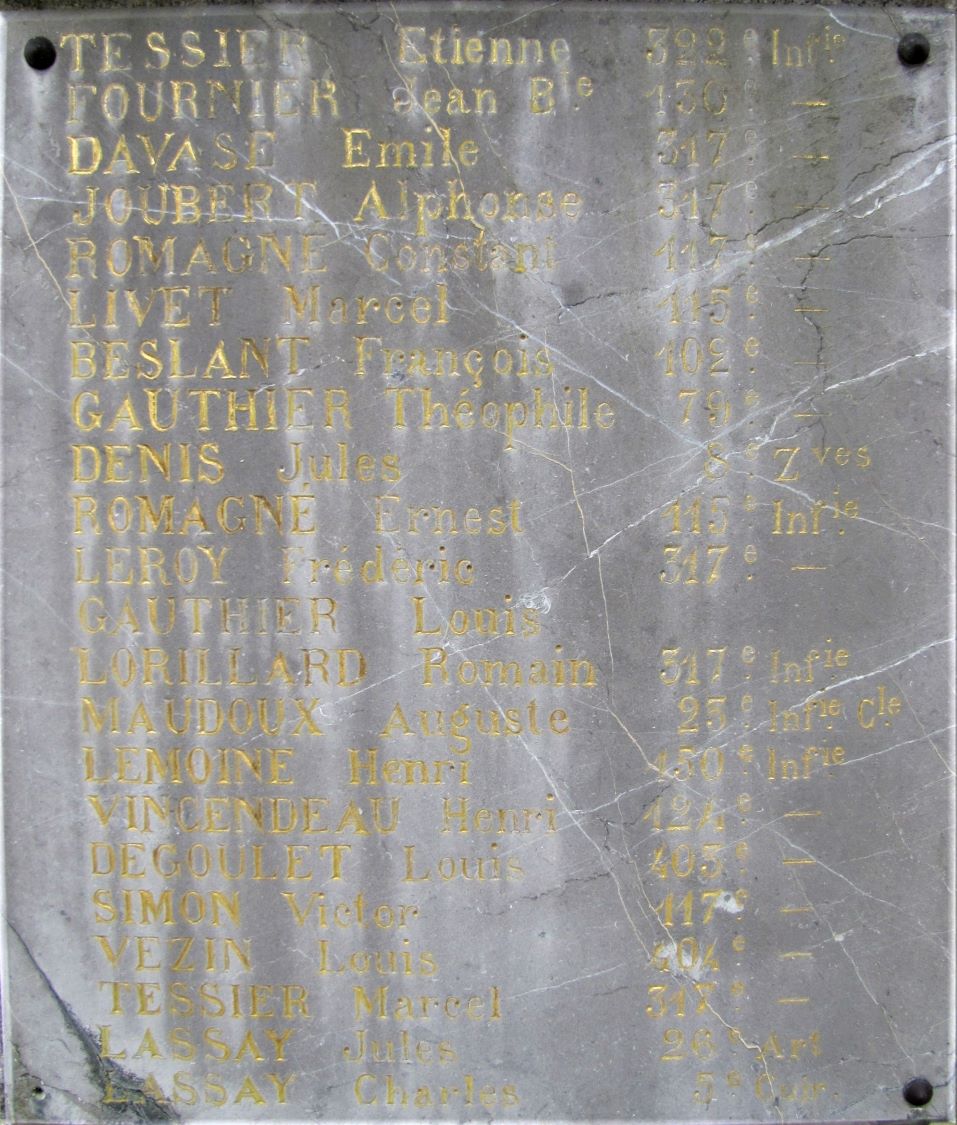 TESSIER Etienne 322e Infie
FOURNIER Jean Bte 130e —
DAVASE Emile 317e —
JOUBERT Alphonse 317e —
ROMAGNÉ Constant 117e —
LIVET Marcel 115e —
BESLANT François 102e —
GAUTHIER Théophile 79e —
DENIS Jules 8e Zves
ROMAGNÉ Ernest 115e Infie
LEROY Frédéric 317e —
GAUTHIER Louis
LORILLARD Romain 317e Infie
MAUDOUX Auguste 23e Infie Cle
LEMOINE Henri 150e Infie
VINCENDEAU Henri 124e —
DEGOULET Louis 403e —
SIMON Victor 117e —
VEZIN Louis 404e —
TESSIER Marcel 317e —
LASSAY Jules 26e Art
LASSAY Charles 5e Cuir.